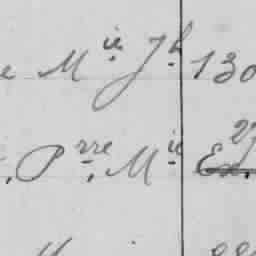 e Mie Jh 130
Prre Mie Ex. 27